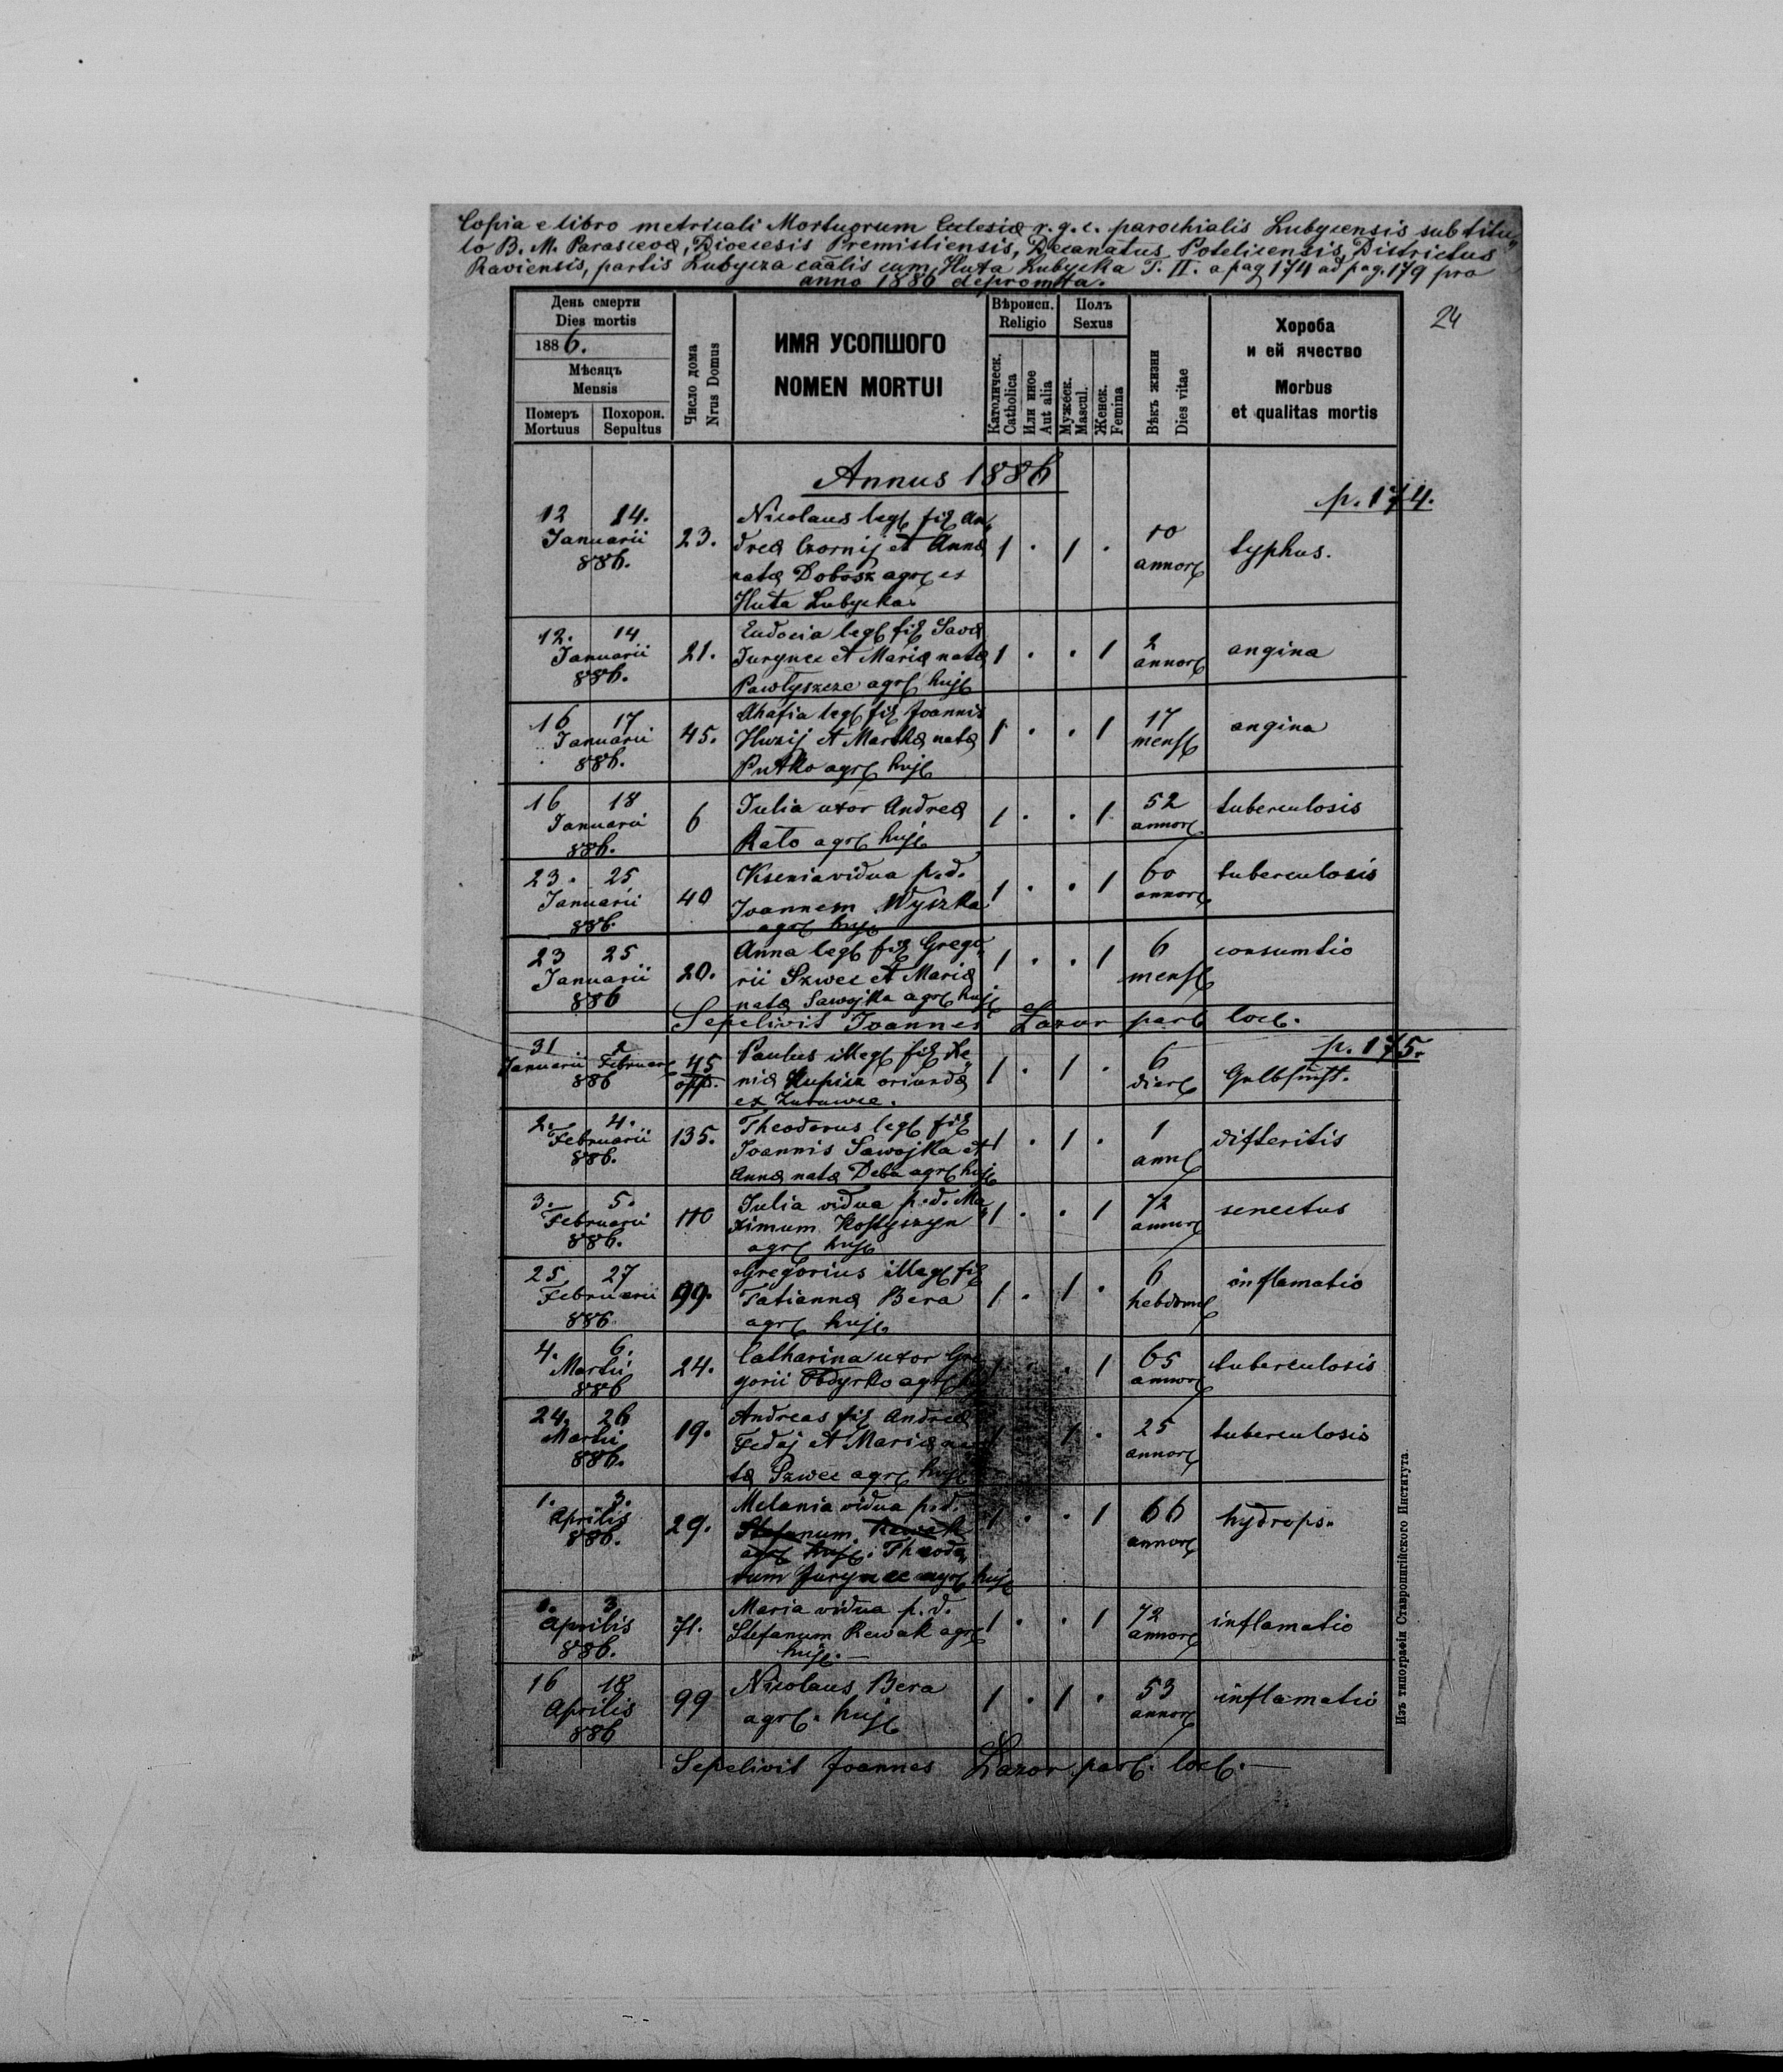 Copia e libro metricali Mortuorum Ecclesiæ r. g. c. parochialis Lubycensis sub titu„
lo B. M. Parascevæ, Dioecesis Premisliensis, Decanatus Potelicensis, Districtus
Raviensis, partis Lubycza caãlis cum Huta Lubycka T. II. a pag 174 ad pag. 179 pro
anno 1886 deprompta.
24
День смерти
Dies mortis
1886.
Мѣсяцъ
Mensis
Померъ
Mortuus
Похорон.
Sepultus
Число дома
Nrus Domus
ИМЯ УСОПШОГО
NOMEN MORTUI
Вѣроисп.
Religio
Католическ.
Catholica
Или иное
Aut alia
Полъ
Sexus
Мужеск.
Mascul.
Женск.
Femina
Вѣкъ жизни
Dies vitae
Хороба
и ей ячество
Morbus
et qualitas mortis
Annus 1886
p. 174.
12 14.
Januarii
886.
23.
Nicolaus leg fil An„
dreæ Czornij et Annæ
natæ Dobosz agr ex
Huta Lubycka.
1 . 1 .
10
annor
typhus.
12. 14
Januarii
886.
21.
Eudocia leg fil Savæ
Jurynec et Mariæ natæ
Pawłyszcze agr huj
1 . . 1
2
annor
angina
16 17
Januarii
886.
45.
Ahafia leg fil Joannis
Huzij et Marthæ natæ
Putko agr huj
1 . . 1
17
mens
angina
16 18
Januarii
886.
6
Julia uxor Andreæ
Rato agr huj
1 . . 1
52
annor
tuberculosis
23. 25
Januarii
886.
40
Ksenia vidua p. d.
Joannem Wyszka
agr huj
1 . . 1
60
annor
tuberculosis
23 25
Januarii
886
20.
Anna leg fil Grego„
rii Szwec et Mariæ
natæ Sawojka agr huj
1 . . 1
6
mens
consumtio
Sepelivit Joannes Lazor par loc.
p. 175.
31 2
Januarii Februar
886
45
opp.
Paulus illeg fil Xe„
niæ Kupicz oriundæ
ex
1 . 1 .
6
dier
Gelbsucht.
2. 4.
Februarii
886.
135.
Theodorus leg fil
Joannis Sawojka et
Annæ natæ Deba agr huj
1 . 1 .
1
ann
difteritis
3. 5.
Februarii
886.
110
Julia vidua p. d. Ma„
ximum Kostyszyn
agr huj
1 . . 1
72
annor
senectus
25 27
Februarii
886.
99.
Gregorius illeg fil
Tatiannæ Bera
agr huj.
1 . 1 .
6
hebdom
inflamatio
4. 6.
Martii
886
24.
Catharina uxor Gre
gorii Obdyrko agr
1 . . 1
65
annor
tuberculosis
24. 26
Martii
886.
19.
Andreas fil Andreæ
Fedej et Mariæ na
tæ Szwec agr huj
1 . 1 .
25
annor
tuberculosis
1. 3.
Aprilis
886.
29.
Melania vidua p. d.
Stefanum Rewak
agr huj. Theodo„
rum Jurynec agr huj
1 . . 1
66
annor
hydrops.
1. 3
Aprilis
886.
71.
Maria vidua p. d.
Stefanum Rewak agr
huj.
1 . . 1
72
annor
inflamatio
16 18
Aprilis
886
99
Nicolaus Bera
agr. huj
1 . 1 .
53
annor
inflamatio
Sepelivit Joannes Lazor par. loc.
Изъ типографіи Ставропигійского Института.